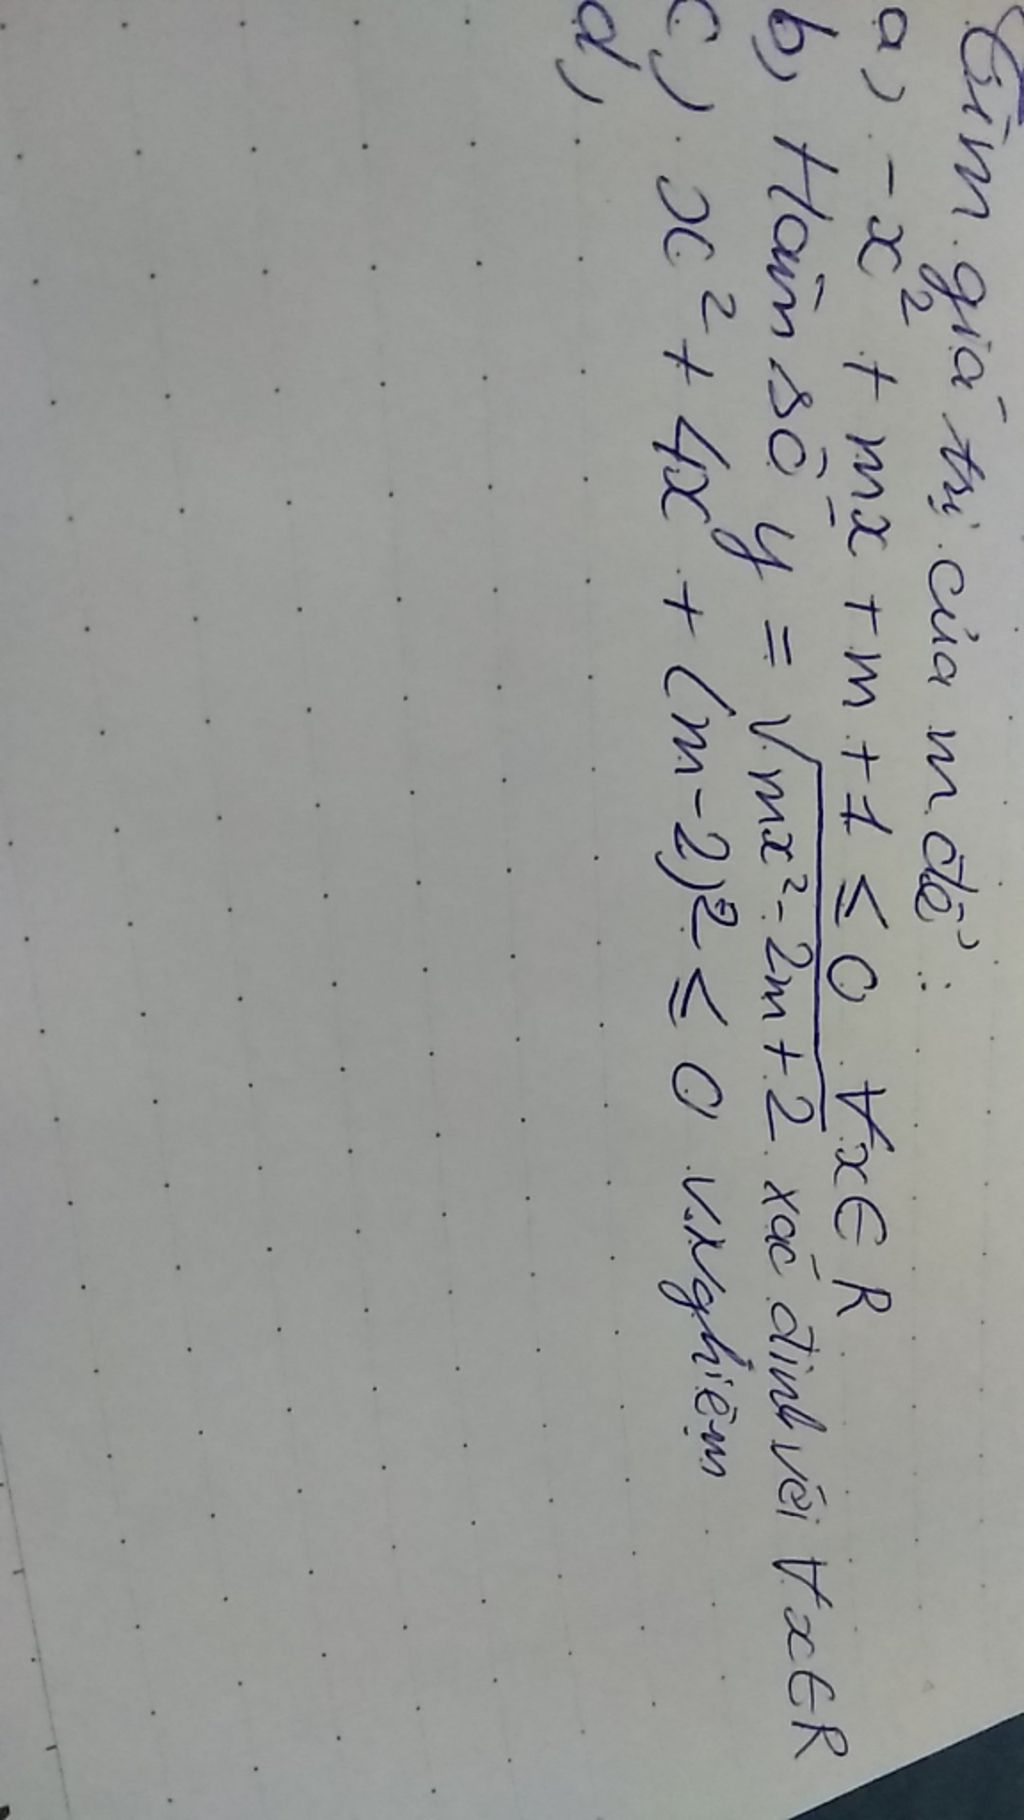 Tìm giá trị của m để :
a) -x² + mx + m + 1 ≤ 0 ∀x∈R
b) Hàm số y = √mx² - 2m + 2 xác định với ∀x∈R
c) x² + 4x + (m-2)² ≤ 0 v.nghiệm
d)